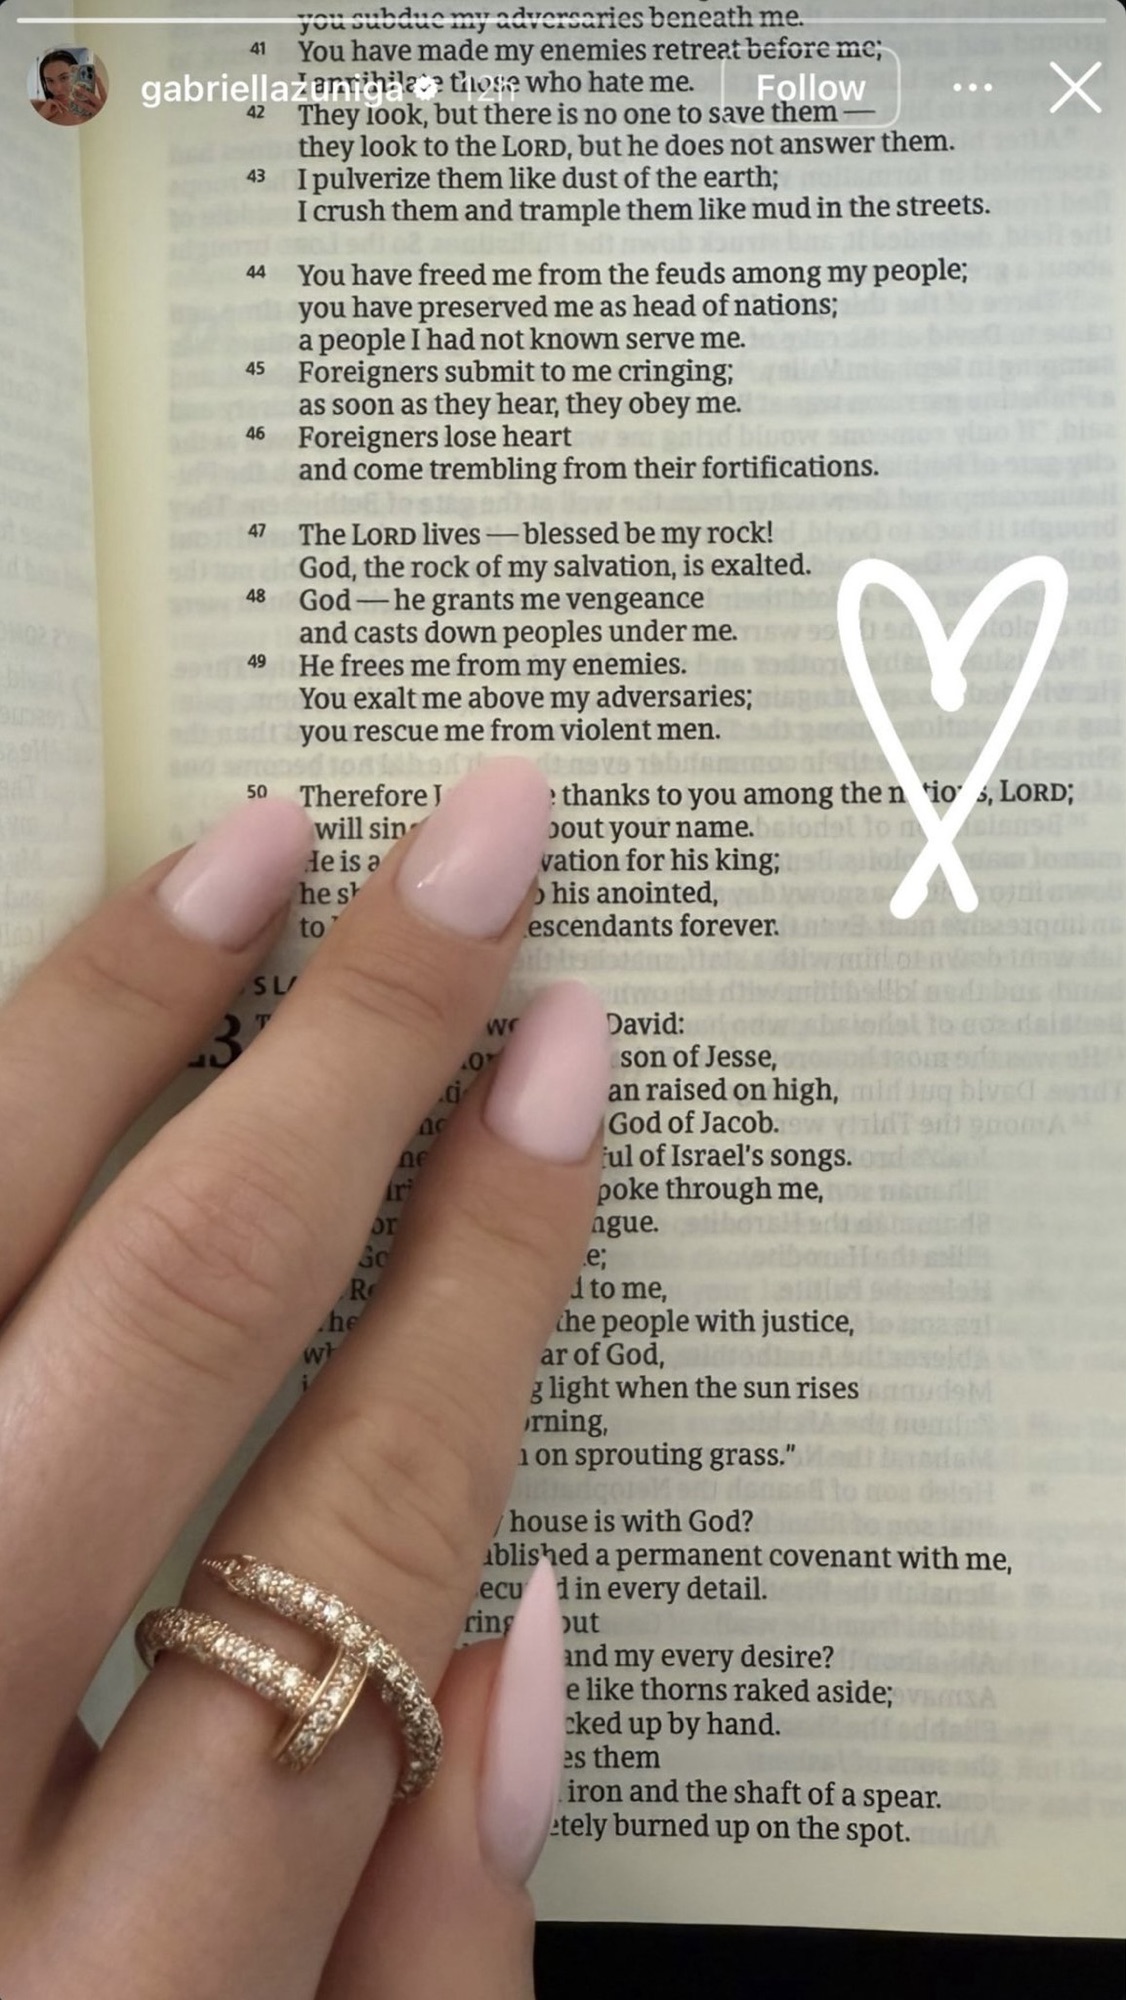 you subdue my adversaries beneath me.
41 You have made my enemies retreat before me;
I annihilate those who hate me.
gabriellazuniga 12h Follow
42 They look, but there is no one to save them —
they look to the LORD, but he does not answer them.
43 I pulverize them like dust of the earth;
I crush them and trample them like mud in the streets.
44 You have freed me from the feuds among my people;
you have preserved me as head of nations;
a people I had not known serve me.
45 Foreigners submit to me cringing;
as soon as they hear, they obey me.
46 Foreigners lose heart
and come trembling from their fortifications.
47 The LORD lives — blessed be my rock!
God, the rock of my salvation, is exalted.
48 God — he grants me vengeance
and casts down peoples under me.
49 He frees me from my enemies.
You exalt me above my adversaries;
you rescue me from violent men.
50 Therefore I thanks to you among the nations, LORD;
will about your name.
He is a for his king;
he his anointed,
to descendants forever.
David:
son of Jesse,
raised on high,
God of Jacob.
of Israel's songs.
through me,
to me,
the people with justice,
of God,
light when the sun rises
on sprouting grass."
house is with God?
a permanent covenant with me,
in every detail.
and my every desire?
like thorns raked aside;
up by hand.
them
iron and the shaft of a spear.
burned up on the spot.